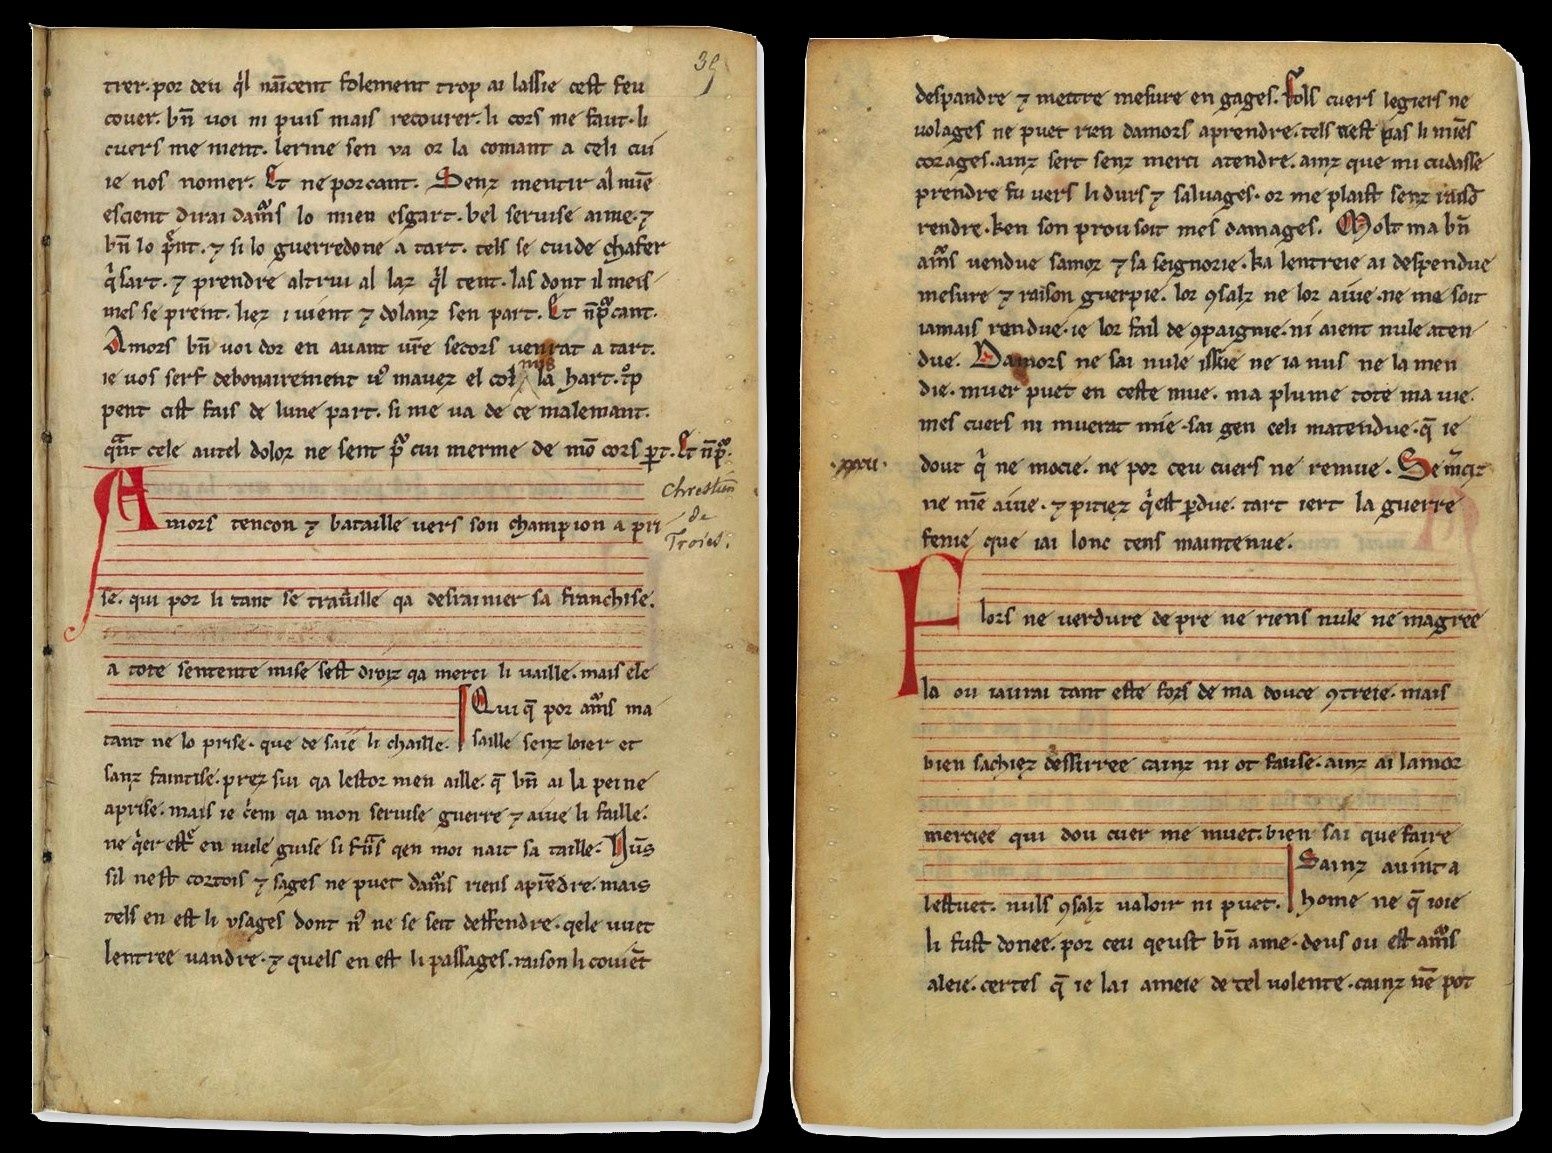 39
trer. por deu q'l nāıcent folement trop ai lassie cest feu
couer. bn̄ voi ni puis mais recourer. li cors me faut. li
cuers me ment. lerme sen va or la comant a celi cui
ie nos nomer. Et ne porcant. Senz mentir al miē
escient dirai dam̃s lo mien esgart. bel seruise aime. ⁊
bn̄ lo p̃nt. ⁊ si lo guerredone a tart. tels se cuide chafer
q'sart. ⁊ prendre altrui al laz q'l tent. las dont il meis
mes se prent. liez i uient ⁊ dolanz sen part. Et n̄p̃cant.
Amors bn̄ voi dor en auant vr̄e secors uenrat a tart.
ie vos serf debonairement mauez el col mis la hart. t°p
pent cist fais de lune part. si me va de ce malemant.
q̃nt cele autel dolor ne sent p̃ cui merme de mō cors ꝑt. Et n̄p̃.
Chrestien
de
Troies.
Amors tencon ⁊ bataille vers son champion a pri
se. qui por li tant se trauaille qa desrainier sa franchise.
a tote sentente mise sest droiz qa merci li vaille. mais ele
tant ne lo prise. que de saie li chaille. Qui q̄ por am̃s ma
saille senz loier et
sanz faintise. prez sui qa lestor men aille. q̄ bn̄ ai la peine
aprise. mais ie c'em qa mon seruise guerre ⁊ aiue li faille.
ne q'er estr̃ en nule guise si frãs qen moi nait sa taille. Nūs
sil nest cortois ⁊ sages ne puet dam̃s riens aprēdre. mais
tels en est li vsages dont n' ne se seit deffendre. qele vuet
lentree vandre. ⁊ quels en est li passages. raison li couiēt
despandre ⁊ mettre mesure en gages. Fols cuers legiers ne
uolages ne puet rien damors aprendre. tels nest pas li miēs
corages. ainz sert senz merci atendre. ainz que mi cudasse
prendre fu vers li durs ⁊ saluages. or me plaist senz raisō
rendre. ken son prou soit mes damages. Molt ma bn̄
am̃s uendue samor ⁊ sa seignorie. ka lentreie ai despendue
mesure ⁊ raison guerpie. lor ꝯsalz ne lor aiue. ne me soit
iamais rendue. ie lor fail de ꝯpaignie. ni aient nule aten
due. Damors ne sai nule issue ne ia nus ne la men
die. muer puet en ceste mue. ma plume tote ma uie.
mes cuers ni muerat mie. sai gen celi matendue. q̄ ie
.xxxii. dout q' ne mocie. ne por ceu cuers ne remue. Se m'ciz
ne mē aiue. ⁊ pitiez q'est ꝑdue. tart iert la guerre
fenie que iai lonc tens maintenue.
Flors ne verdure de pre ne riens nule ne magree
la ou iaurai tant este fors de ma douce ꝯtreie. mais
bien sachiez dessirree cainz ni ot fause. ainz ai lamor
merciee qui dou cuer me muet. bien sai que faire
lestuet. nuls ꝯsalz valoir ni puet. Sainz auint a
home ne q̄ ioie
li fust donee. por ceu qeust bn̄ ame. deus ou est am̃s
aleie. certes q̄ ie lai ameie de tel uolente. cainz nē pot